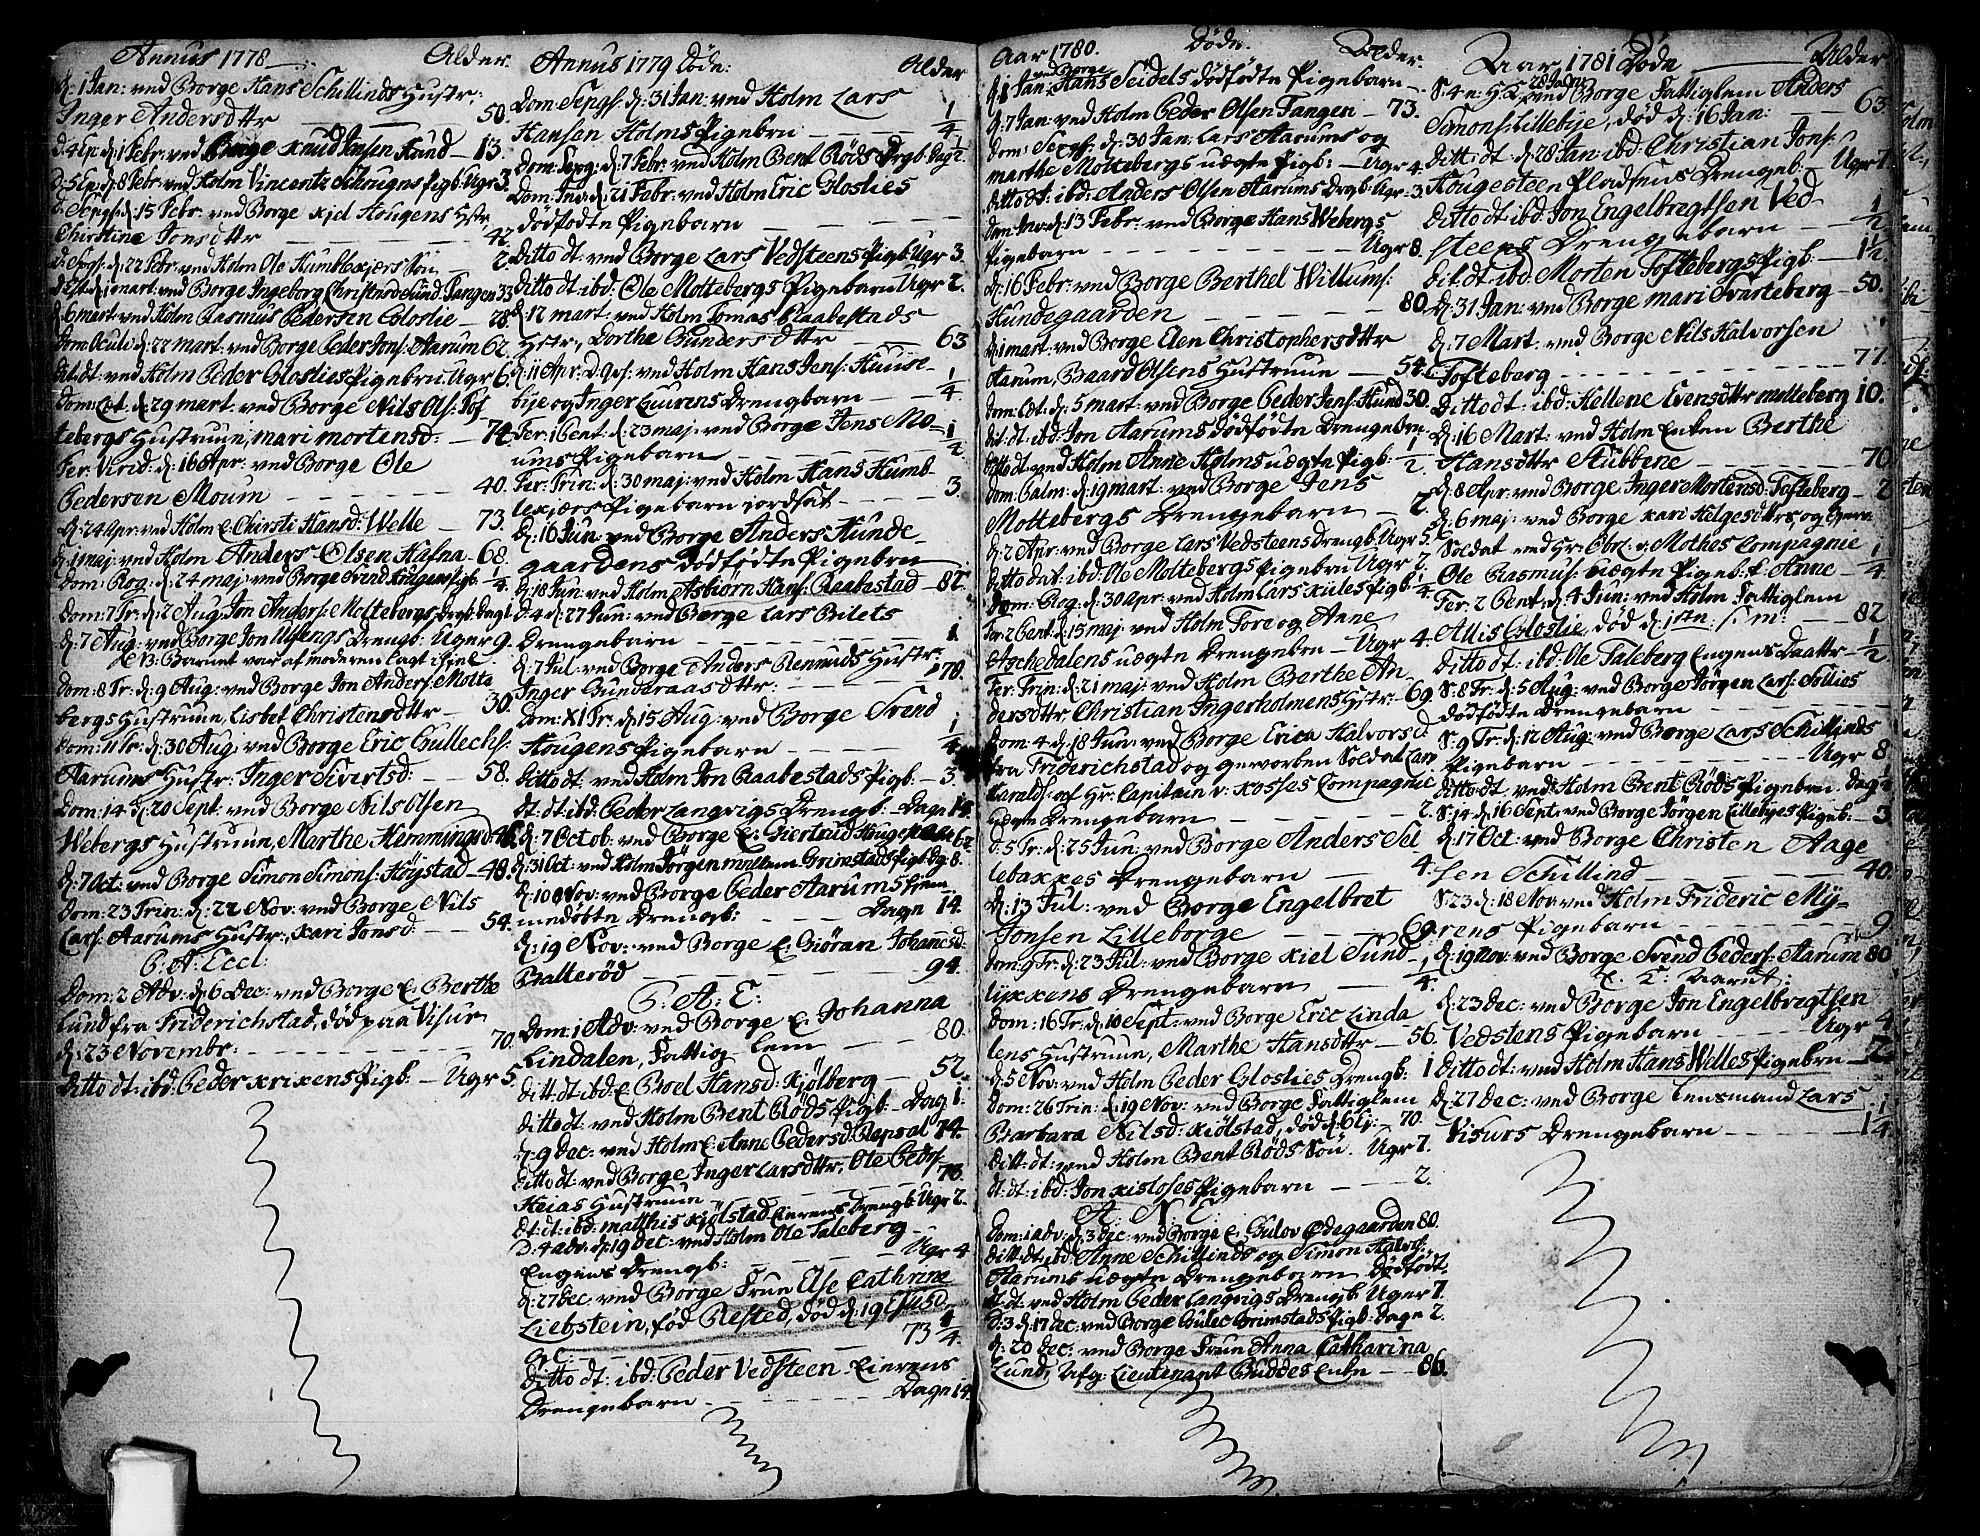 Annus 1778 Alder.
d: 1 Jan: ved Borge Hans Schillinds Hustr:
Inger Andersdttr 50.
d: 1 Febr: ved Borge Knud Jensen Hund 13.
d: 8 Febr: ved Holm Vincents Pigb: Ugr 3.
d: 15 Febr: ved Borge Kjel Hougens Hstr
Christine Jonsdttr 42
d: 22 Febr: ved Holm Ole Humblekjærs Søn 2.
mart: ved Borge Ingeborg 33
d: 6 mart: ved Holm Rasmus Pedersen Gloslie 28.
Dom: Oculi d: 22 mart: ved Borge Peder Jons: Aarum 62.
dit dt: ved Holm Peder Gloslies Pigebrn Ugr 6.
Dom: Læt: d: 29 mart: ved Borge Nils Ols: Tof
tebergs Hustruue, mari mortensd: 74.
Fer: Virid: d: 16 Apr: ved Borge Ole
Pedersen Moum 40.
d: 24 Apr: ved Holm E. Chirsti Hansd: Welle 73.
d: 1 maj: ved Holm Anders Olsen Hafna 68.
Dom: Rog: d: 24 maj: ved Borge Svend Hougens Pigb: 1/4.
Dom: 7 Tr: d: 2 Aug: Jon Anders: Mottebergs Drgb: Dag 1.
d: 7 Aug: ved Borge Jon Drengb: Uger 9.
NB: Barnet var af moderen lagt ihiel.
Dom: 8 Tr: d: 9 Aug: ved Borge Jon Anders: Motte
bergs Hustruue, Lisbet Christensdttr 30.
Dom: 11 Tr: d: 30 Aug: ved Borge Eric Gullechs:
Aarums Hustr: Inger Sivertsd: 58.
Dom: 14 d: 20 Sept: ved Borge Nils Olsen
Webergs Hustruue, Marthe Hemmingsd: 46.
d: 7 Oct: ved Borge Simon Simons: Høystad 48.
Dom: 23 Trin: d: 22 Nov: ved Borge Nils
Lars: Aarums Hustr:, Kari Jonsd: 54.
P: A: Eccl:
Dom: 2 Adv: d: 6 Dec: ved Borge E. Berthe
Lund fra Friderichstad, død paa Visur
d: 23 Novembr: 70.
Ditto dt: ibd: Peder Krixens Pigb: Ugr 5.
Annus 1779 Døde: Alder
Dom: Sepgs: d: 31 Jan: ved Holm Lars
Hansen Holms Pigebrn 1/4
Dom: Sexg: d: 7 Febr: ved Holm Bent Røds Drgb: Dag 1/2.
Dom: Inv: d: 21 Febr: ved Holm Eric Gloslies
dødfødte Pigebarn
Ditto dt: ved Borge Lars Vedsteens Pigb: Ugr 3.
Ditto dt: ibd: Ole Mottebergs Pigebarn Ugr 2.
d: 12 mart: ved Holm Tomas Raabestads
Hstr:, Dorthe Gundersdttr 63
d: 11 Apr: D: Qs: ved Holm Hans Jens: Huuse
bije og Inger Luurens Drengbarn 1/4.
Fer: 1 Pent: d: 23 maj: ved Borge Jens Mo
ums Pigebarn 1/2
Fer: Trin: d: 30 maj: ved Holm Hans Humb
lekjærs Pigebarn jordsat 3
d: 16 Jun: ved Borge Anders Hunde
gaardens Dødfødte Pigebrn
d: 18 Jun: ved Holm Asbiørn Hans: Raabestad 82.
D: 4 d: 27 Jun: ved Borge Lars Bilets
Drengebarn 1.
d: 7 Jul: ved Borge Anders Renmuds Hustr:
Inger Gunderaasdttr: 70.
Dom: XI Tr: d: 15 Aug: ved Borge Svend
Hougens Pigebarn 1/4
Ditto dt: ved Holm Jon Raabestads Pigb: 3
dt: dt: ibd: Peder Langvigs Drengb: Dage 14.
d: 7 Octob: ved Borge E: Giertrud 62
d: 31 Oct: ved Holm Jørgen mellem Grimstads Pigb: Dg: 8.
d: 10 Nov: ved Borge Peder Aarums hiem
medøbte Drengb: Dage 14.
d: 19 Nov: ved Borge E. Giøran Johannesd:
Balterød 94.
P: A: E:
Dom: 1 Adv: ved Borge E. Johanna
Lindalen, Fattig Lem 80.
ditt dt: ibd: E Boel Hansd: Kjølberg 52.
ditto dt: ved Holm Bent Røds Pigb: Dag 1.
d: 9 Dec: ved Holm E. Anne Pedersd: Repsal 74.
ditto dt: ved Borge Inger Larsdttr, Ole Peds:
Heias Hustruue 73.
dt: dt: ibd: matthis Kjølstad Eierens Drengb: Ugr 2.
D: 4 adv: d: 19 dec: ved Holm Ole Taleberg
Engens Drengb: Ugr 4
d: 27 dec: ved Borge Frue Else Cathrine
Liebstein, fød Rested, død d: 19
73 1/4
ditto dt: ibd: Peder Vedsteen Eierens
Drengebarn Dage 14
Aar 1780. Døde. Alder.
d: 1 Jan: ved Borge Hans Seidels dødfødte Pigebarn
d: 7 Jan: ved Holm Peder Olsen Tangen 73.
Dom: Sexgs: d: 30 Jan: Lars Aarums og
marthe Mottebergs uægte Pigb: Ugr 4.
ditto dt: ibd: Anders Olsen Aarums Drgb: Ugr: 3
Dom: Inv: d: 13 Febr: ved Borge Hans Webergs
Pigebarn Ugr 8.
d: 16 Febr: ved Borge Berthel Willums:
Hundegaarden 80.
d: 1 mart: ved Borge Elen Christophersdttr
Aarum, Baard Olsens Hustruue 54.
Dom: Læt: d: 5 mart: ved Borge Peder Jens: Hund 30.
dit: dt: ibd: Jon Aarums dødfødte Drengebrn
ditto dt: ved Holm Anne Holms uægte Pigb: 1/2.
Dom: Palm: d: 19 mart: ved Borge Jens
Mottebergs Drengebarn 2.
d: 2 Apr: ved Borge Lars Vedsteens Drengb: Ugr 5.
ditto dt: ibd: Ole Mottebergs Pigebrn Ugr 7.
Dom: Rog: d: 30 Apr: ved Holm Lars Kiiles Pigb: 1/4
Fer: 2 Pent: d: 15 maj: ved Holm Tore og Anne
Aschedalens uægte Drengebrn Ugr 4.
Fer: Trin: d: 21 maj: ved Holm Berthe An
dersdttr Christian Ingerholmens Hstr: 69.
Dom: 4 d: 18 Jun: ved Borge Erica Halvorsd
fra Friderichstad og gevorben Soldat Lars
Haralds: af Hr: Capitain v: Kosses Compagnie
uægte Drengebarn 2.
D: 5 Tr: d: 25 Jun: ved Borge Anders Sel
lebakkes Drengebarn 4.
d: 13 Jul: ved Borge Engelbret
Jonsen Lilleborge 69.
Dom: 9 Tr: d: 23 Jul: ved Borge Kiel Sund
lykkens Drengebarn 1/4.
Dom: 16 Tr: d: 10 Sept: ved Borge Eric Linda
lens Hustruue, Marthe Hansdttr 56.
d: 5 Nov: ved Holm Peder Gloslies Drengb: 1
Dom: 26 Trin: d: 19 Nov: ved Borge Fattiglem
Barbara Nilsd: Kiølstad, død d: 6 hj: 70.
ditt: dt: ved Holm Bent Røds Søn Ugr 7.
dt: dt: ibd: Jon Kisloses Pigebarn 2.
A: N: E:
Dom: 1 adv: d: 3 dec: ved Borge E. Gulov Ødegaarden 80.
ditt: dt: ibd: Anne Schillinds og Simon Halvos:
Aarums uægte Drengebarn Dødfødt.
dt: dt: ved Holm Peder Langvigs Drengb: Uger 7.
D: 3 d: 17 dec: ved Borge Gulec Grimstads Pigb: Dage 2.
d: 20 dec: ved Borge Frue Anna Catharina
Lund, Afg: Lieutenant Buddes Enke 86.
Aar 1781 Døde Alder
S: 4 e: H: 3 K: 28 Jan: ved Borge Fattiglem Anders
Simons: Lillebije, død d: 16 Jan: 63
ditto dt: d: 28 Jan: ibd: Christian Jons:
Hougesteen Pladsens Drengeb: Ugr 7
Ditto dt: ibd: Jon Engelbregtsen Ved
steens Drengebarn 1/2
dit: dt: ibd: Morten Toftebergs Pigb: 1 1/2
d: 31 Jan: ved Borge mari Svarteberg 50.
d: 7 Mart: ved Borge Nils Halvorsen
Tofteberg 77.
Ditto dt: ibd: Hellene Evensdttr motteberg 10.
d: 16 Mart: ved Holm Enken Berthe
Hansdttr Stubbene 70
d: 8 Apr: ved Borge Inger Mortensd: Tofteberg 2
d: 6 maj: ved Borge Kari Helgesdttrs og
Soldat ved Hr: Obrl: v: Mothes Compagnie
Ole Rasmus: uægte Pigeb: Anne 1/4
Fer: 2 Pent: d: 4 Jun: ved Holm Fattiglem
Allis Gloslie, død d: 1ste 82
ditto dt: ibd: Ole Taleberg Engens Daattr 1/2
S: 8 Tr: d: 5 Aug: ved Borge Jørgen Lars: Sollies
dødfødte Drengebarn
S: 9 Tr: d: 12 Aug: ved Borge Lars Schillinds
Pigebarn Ugr 8
ditto dt: ved Holm Bent Røds Pigebrn Dag
S: 14 d: 16 Sept: ved Borge Jørgen Lillebijes Pigeb: 3
d: 17 Oct: ved Borge Christen Aage
sen Schillind 40.
S: 23 d: 18 Nov: ved Holm Frideric My
rens Pigebarn 9
d: 19 Nov: ved Borge Svend Peders: Aarum 80
K: Aaret:
d: 23 Dec: ved Borge Jon Engelbregtsen
Vedstens Pigebarn Ugr 4
ditto dt: ved Holm Hans Welles Pigebrn 2.
d: 27 Dec: ved Borge Lensmand Lars
Visurs Drengebarn 1 1/4.